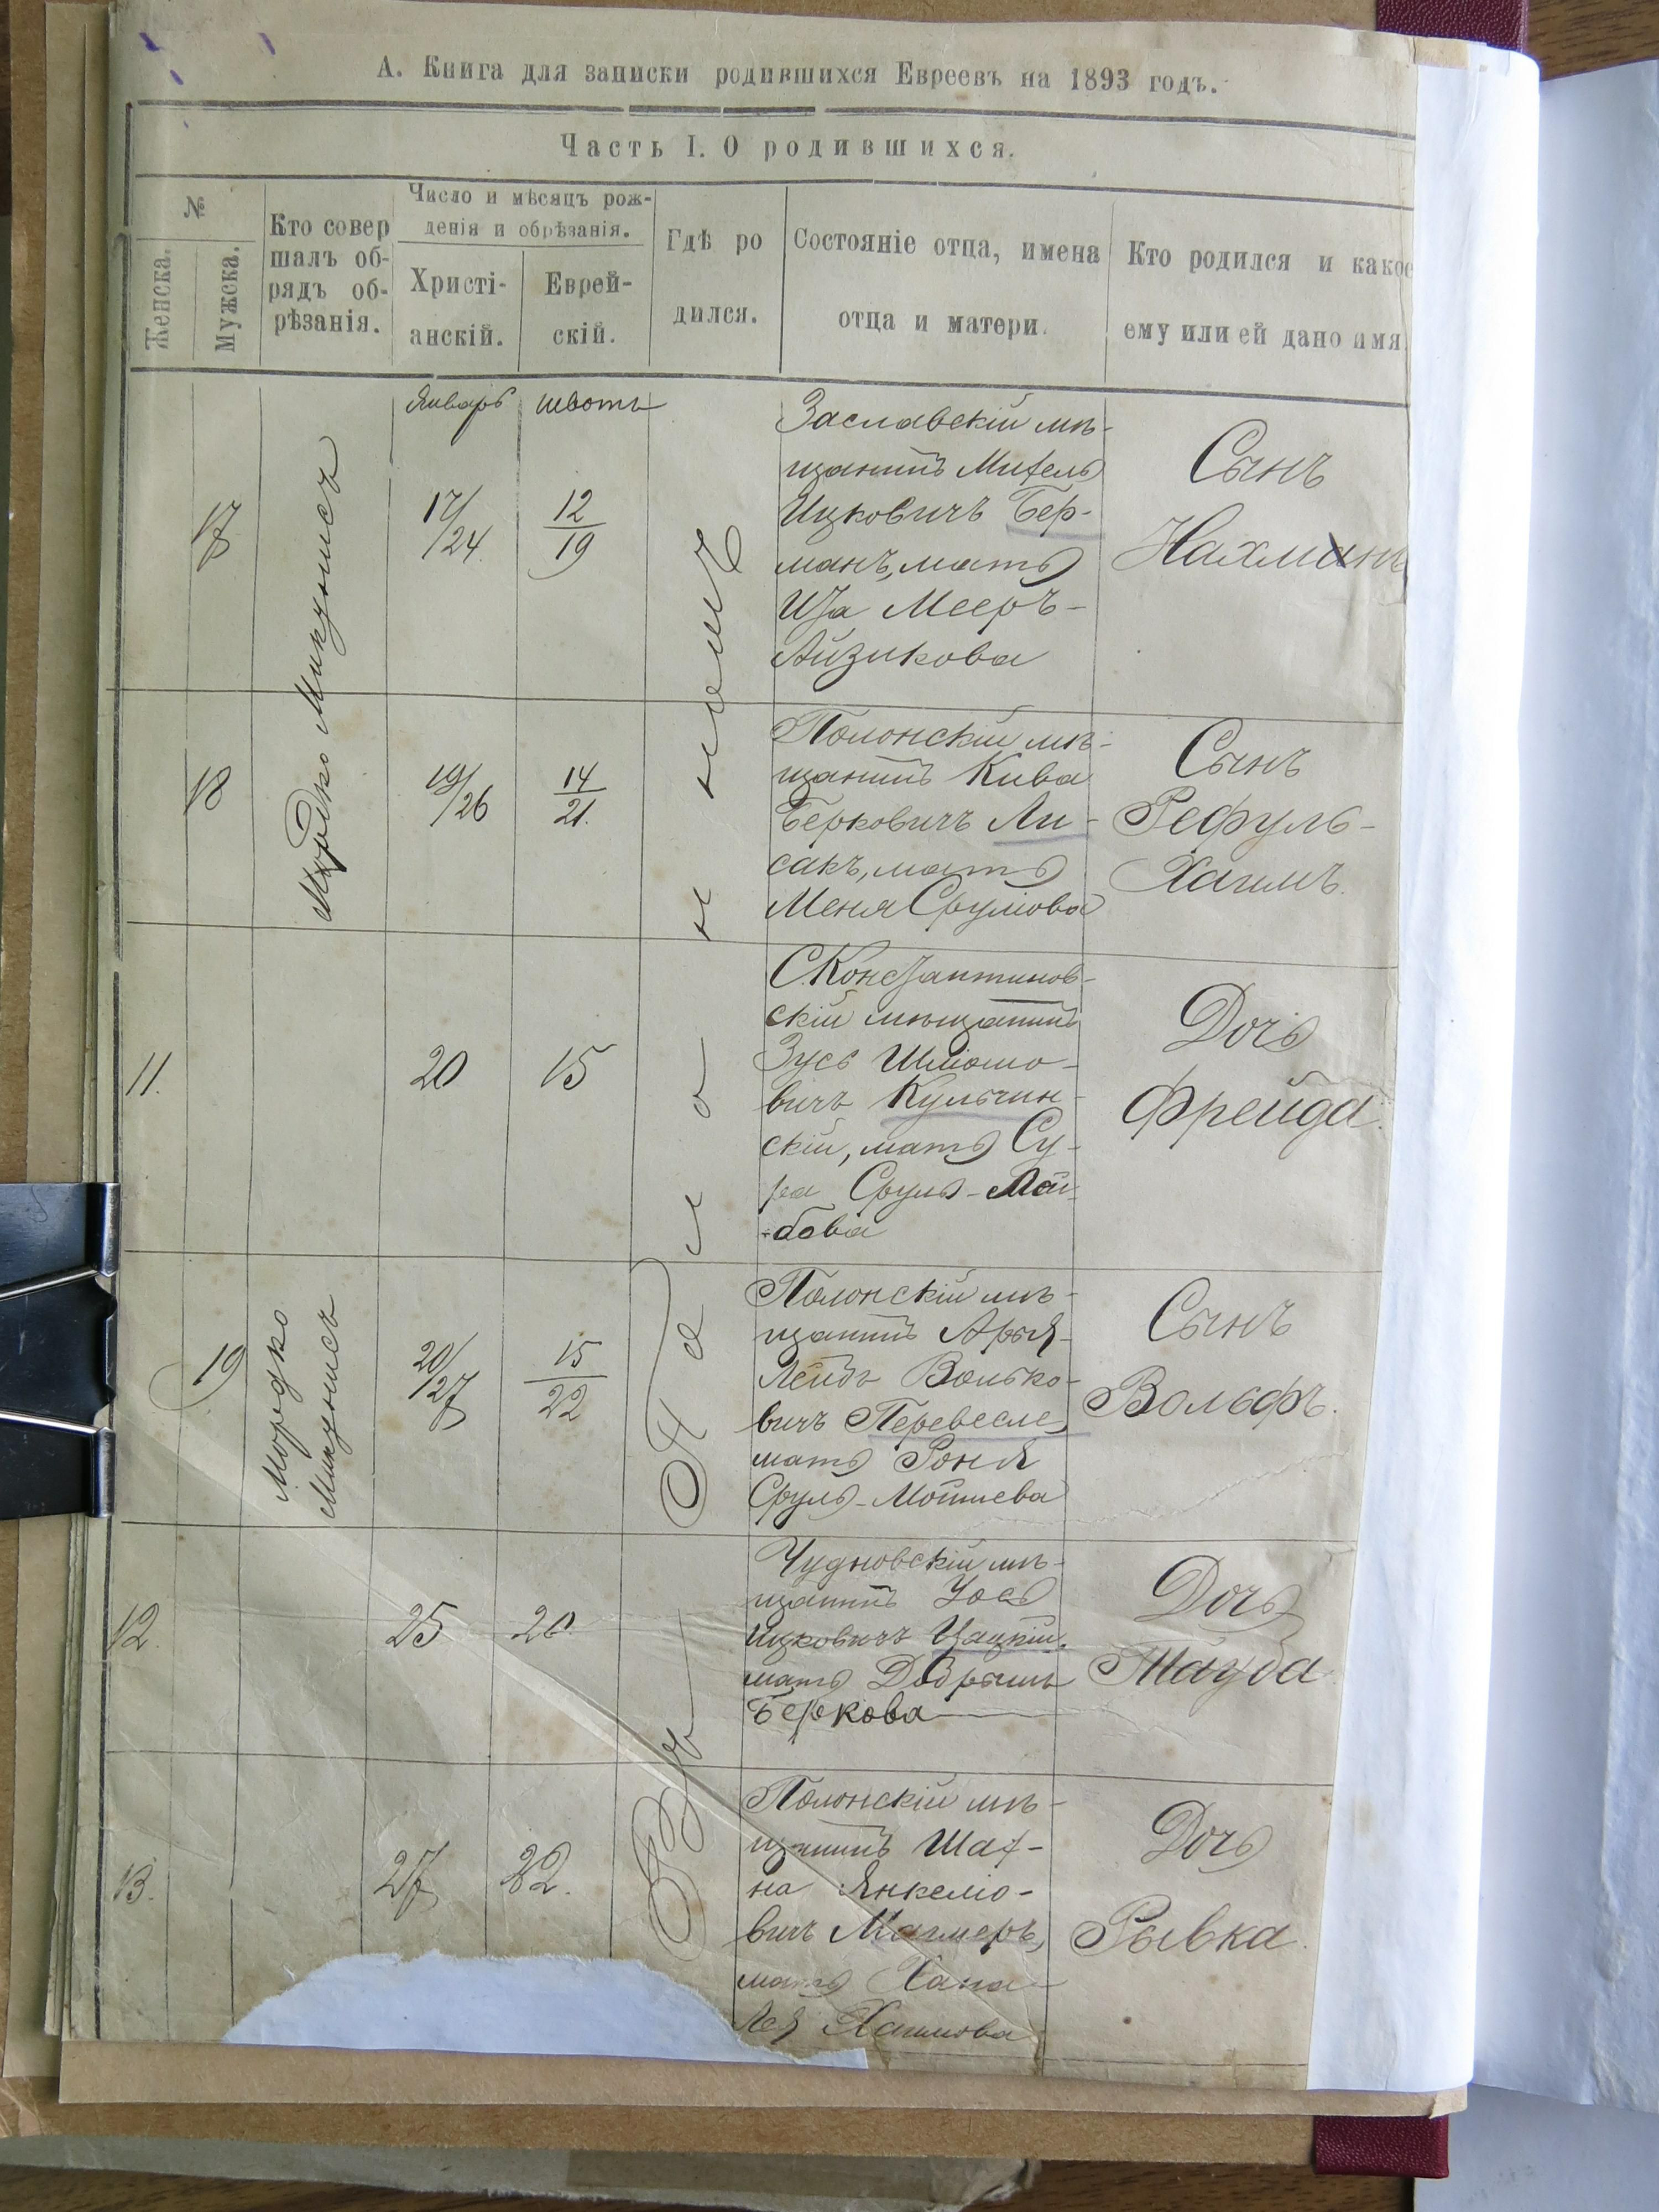 А. Книга для записки родившихся Евреевъ на 1893 годъ.
Часть I. О родившихся.
№
Женска.
Мужска.
Кто совер
шалъ об-
рядъ об-
рѣзанія.
Число и мѣсяцъ рож-
денія и обрѣзанія.
Христі-
анскій.
Еврей-
скій.
Гдѣ ро
дился.
Состояніе отца, имена
отца и матери.
Кто родился и какое
ему или ей дано имя
Январь
Шватъ
Въ Палонномъ
17
Мордко
17/24
12/19
Заславскій мѣ-
щанинъ Михель
Ицковичъ Бер-
манъ, мать
Ита Мееръ-
Айзикова
Сынъ
Нахманъ
18
19/26
14/21.
Полонскій мѣ-
щанинъ Кива
Берковичъ Ли-
сакъ, мать
Меня Срулiова
Сынъ
Рефуль-
Хаимъ.
11.
20
15
С.Константинов-
скій мѣщанинъ
Зусь Шлiомо-
вичъ Кульчин-
скій, мать Су-
ра Сруль-Лей-
бова
Дочь
Фрейда.
19
Мордко
20/27
15/22
Полонскій мѣ-
щанинъ Арыя-
Лейбъ Волько-
вичъ Перевесле,
мать Роня
Сруль-Мошиева
Сынъ
Вольфъ.
12.
25
20.
Чудновскій мѣ-
щанинъ Іось
Ицковичъ
мать Добрышъ
Беркова
Дочь
Тауба
13.
27
22.
Полонскій мѣ-
щанинъ Шах-
на Янкелiо-
вичъ
мать Хана-
Лея Хаимова
Дочь
Рывка.